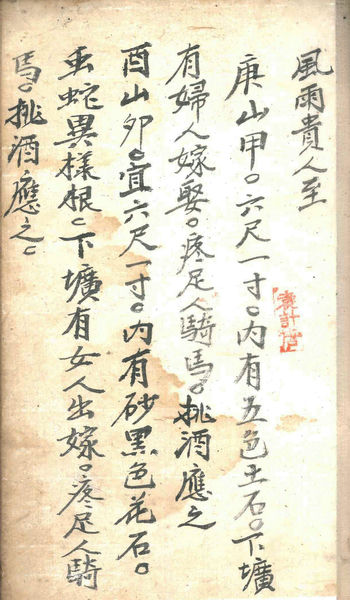 風雨貴人至
庚山甲。六尺一寸。內有五色土石。下壙
有婦人嫁娶。疼足人騎馬。挑酒應之
酉山卯。宜六尺一寸。內有砂黑色花石。
虫蛇異樣根。下壙有女人出嫁。疼足人騎
馬。挑酒應之。